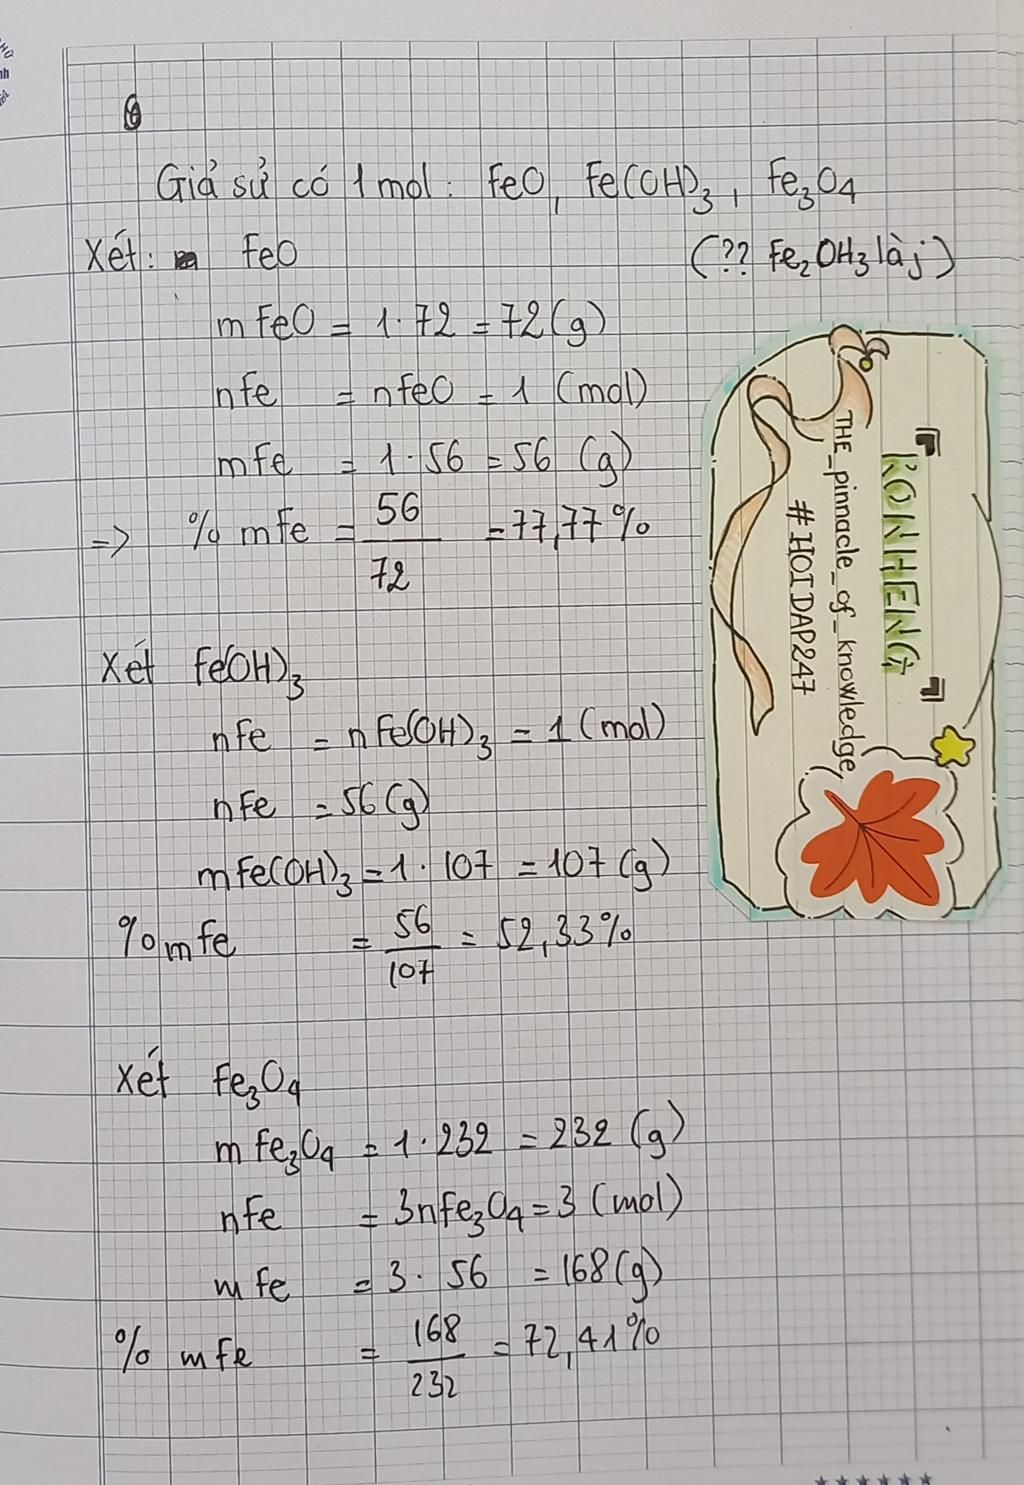 Giả sử có 1 mol: FeO, Fe(OH)3, Fe3O4
Xét: FeO (?? Fe2OH3 là j)
m FeO = 1.72 = 72 (g)
nfe = nfeO = 1 (mol)
mfe = 1.56 = 56 (g)
=> % mfe = 56/72 = 77,77%
Xét Fe(OH)3
nfe = nFe(OH)3 = 1 (mol)
nFe = 56 (g)
mFe(OH)3 = 1.107 = 107 (g)
% mfe = 56/107 = 52,33%
Xét Fe3O4
m Fe3O4 = 1.232 = 232 (g)
nfe = 3nFe3O4 = 3 (mol)
m fe = 3.56 = 168 (g)
% mfe = 168/232 = 72,41%
『RONHENG』
THE_pinnacle_of_knowledge
#HOIDAP247